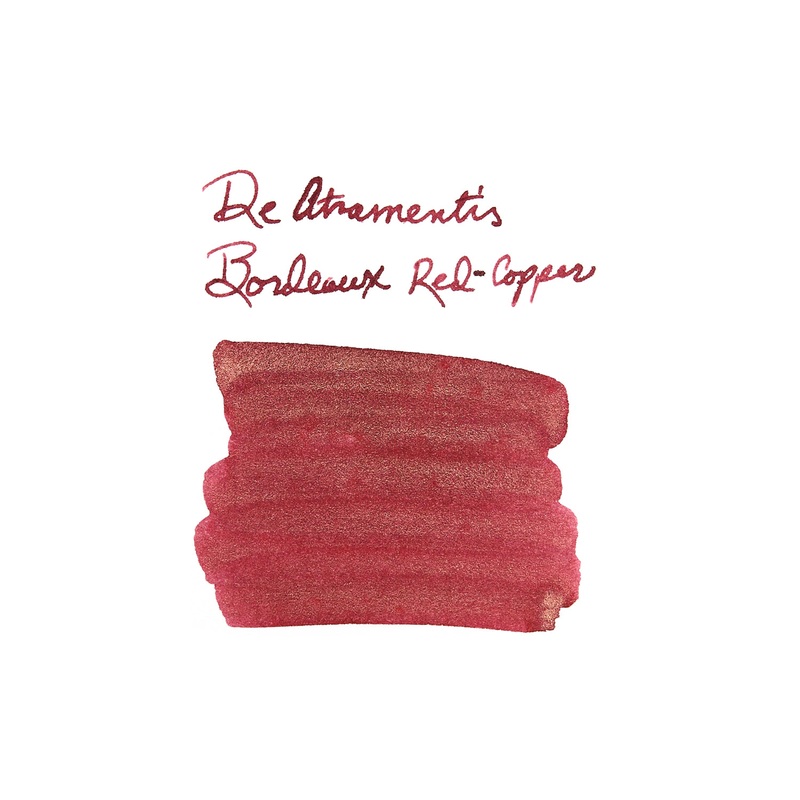 De Atramentis
Bordeaux Red-Copper